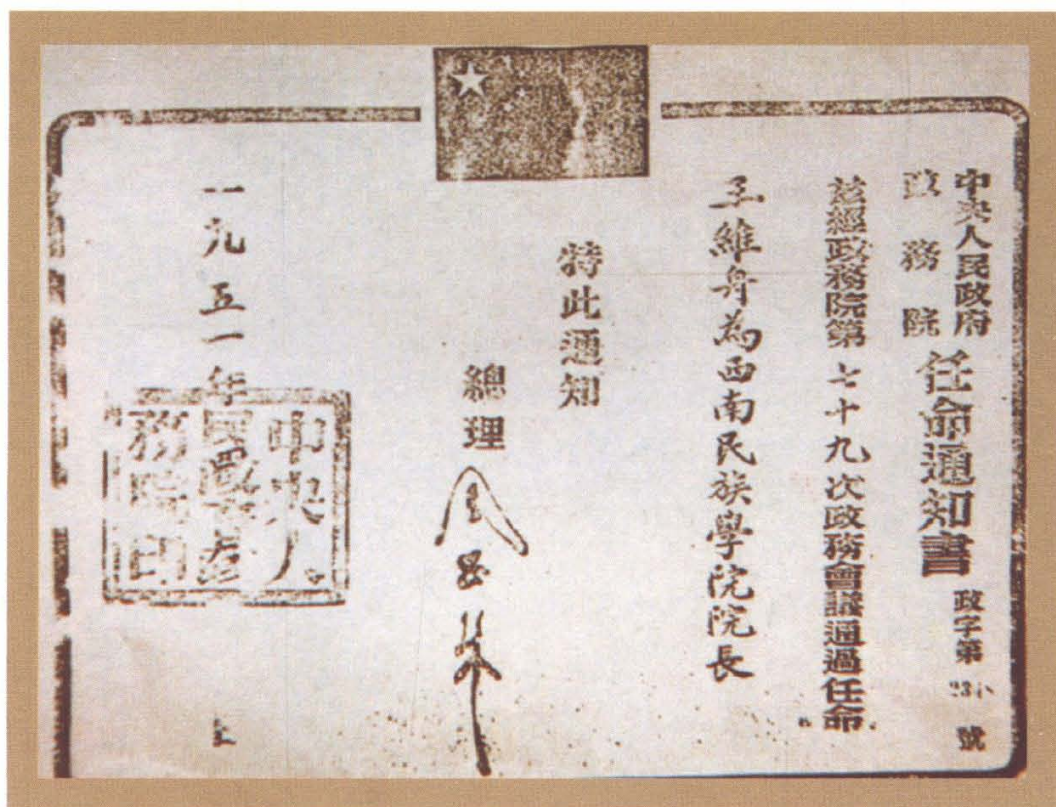 中央人民政府
政務院
任命通知書
政字第 號
茲經政務院第七十九次政務會議通過任命
王維舟為西南民族學院院長
特此通知
總理 周恩來
一九五一年
中央人
務院印